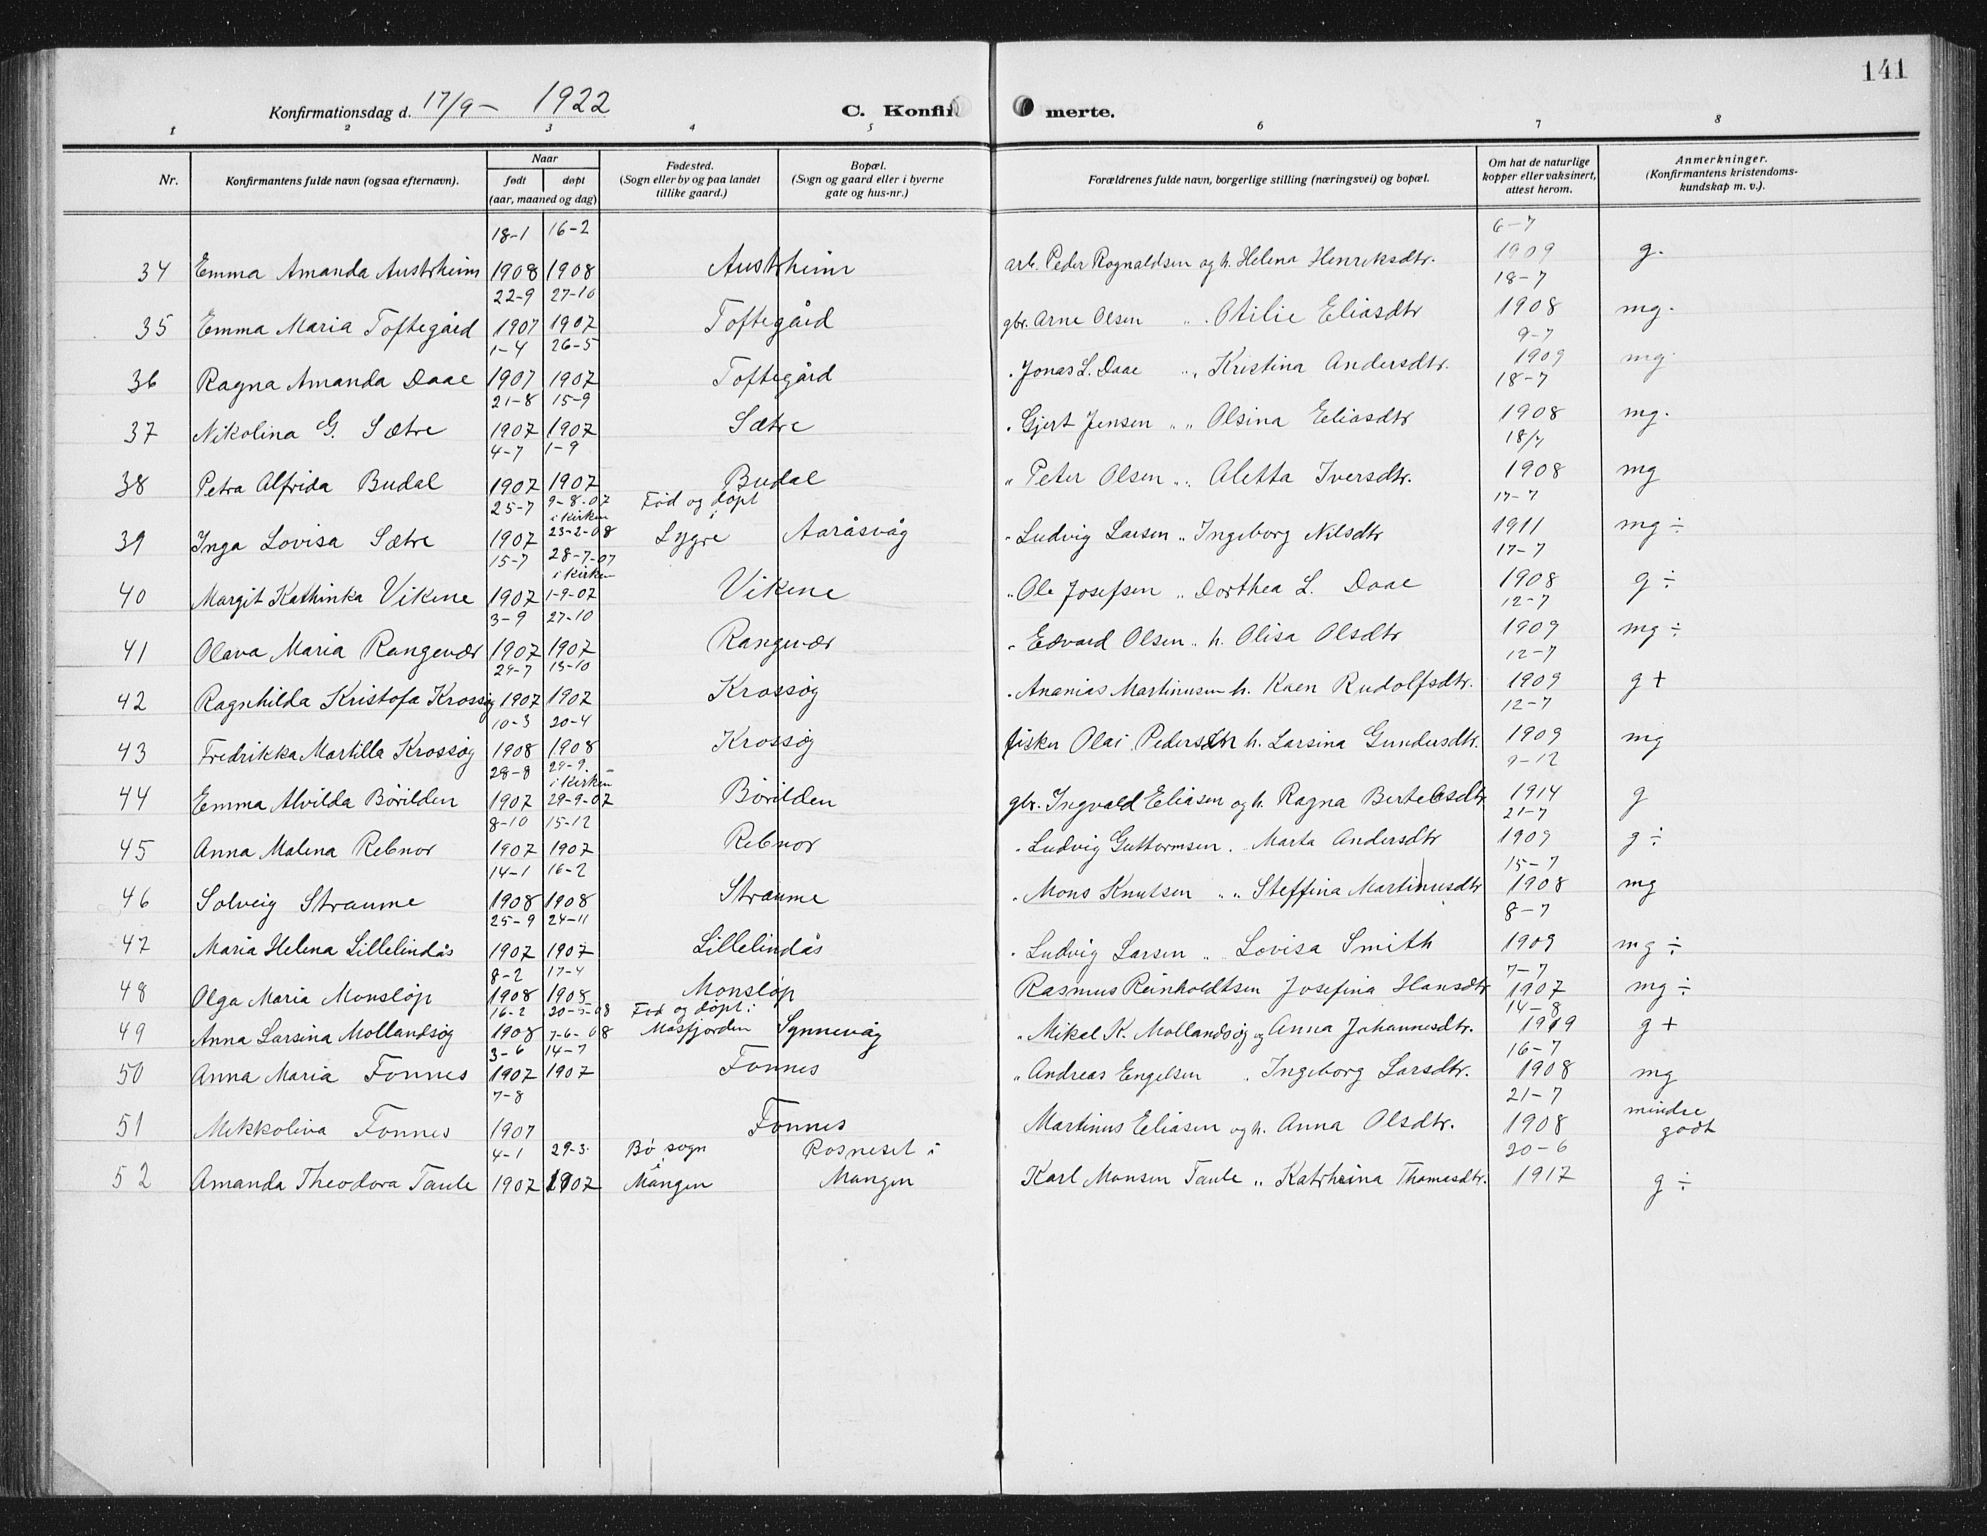 141
Konfirmationsdag d. 17/9 - 1922 C. Konfirmerte.
1 2 3 4 5 6 7 8
Nr. Konfirmantens fulde navn (ogsaa efternavn). Naar født døpt (aar, maaned og dag) Fødested. (Sogn eller by og paa landet tillike gaard.) Bopæl. (Sogn og gaard eller i byerne gate og hus-nr.) Forældrenes fulde navn, borgerlige stilling (næringsvei) og bopæl. Om hat de naturlige kopper eller vaksinert, attest herom. Anmerkninger. (Konfirmantens kristendoms-kundskap m. v.).
18-1 16-2 6-7
34 Emma Amanda Austrheim 1908 1908 Austrheim arb. Peder Rognaldsen og h. Helena Henriksdtr. 1909 g.
22-9 27-10 18-7
35 Emma Maria Toftegård 1907 1907 Toftegård gbr. Arne Olsen " Otilie Eliasdtr 1908 mg.
1-4 26-5 9-7
36 Ragna Amanda Daae 1907 1907 Toftegård " Jonas L. Daae " Kristina Andersdtr. 1909 mg.
21-8 15-9 18-7
37 Nikolina G. Sætre 1907 1907 Sætre " Gjert Jensen " " Olsina Eeliasdtr 1908 mg.
4-7 1-9 18/7
38 Petra Alfrida Budal 1907 1907 Budal " Peter Olsen " Aletta Iversdtr. 1908 mg
25-7 9-8-07 i kirken Fød og døpt i 17-7
39 Inga Lovisa Sætre 1907 23-2-08 Lygre Aaråsvåg " Ludvig Larsen " Ingeborg Nilsdtr 1911 mg ÷
15-7 28-7-07 i kirken 17-7
40 Margit Kathinka Vikene 1907 1-9-07 Vikene " Ole Josefsen " Dorthea L. Daae 1908 g ÷
3-9 27-10 12-7
41 Olava Maria Rangevær 1907 1907 Rangevær " Edvard Olsen " h. Olisa Olsdtr 1909 mg ÷
29-7 13-10 12-7
42 Ragnhilda Kristofa Krossøy 1907 1907 Krossøy " Ananias Martinusen h. Kaen Rudolfsdtr. 1909 g +
10-3 20-4 12-7
43 Fredrikka Martilla Krossøy 1908 1908 Krossøy fisker Olai Pedersen h. Larsina Gundersdtr. 1909 mg
28-8 29-9 i kirken 9-12
44 Emma Alvilda Børilden 1907 29-9-07 Børilden gbr. Ingvald Eliasen og h. Ragna Bertelsdtr 1914 g
8-10 15-12 21-7
45 Anna Malena Rebnor 1907 1907 Rebnor " Ludvig Guttormsen " Marta Andersdtr 1909 g ÷
14-1 16-2 15-7
46 Solveig Straume 1908 1908 Straume " Mons Knutsen " " Steffina Martinusdtr 1908 mg
25-9 24-11 8-7
47 Maria Helena Lillelindås 1907 1907 Lillelindås " Ludvig Larsen " Lovisa Smith 1909 mg ÷
8-2 17-4 7-7
48 Olga Maria Monsløp 1908 1908 Monsløp Rasmus Reinholdtsen Josefina Hansdtr 1907 mg ÷
16-2 20-5-08 Fød og døpt i 14-8
49 Anna Larsina Mollandsøy 1908 7-6-08 Masfjorden Synnevåg " Mikal K. Mollandsøy og Anna Johannesdtr. 1919 g +
3-6 14-7 16-7
50 Anna Maria Fonnes 1907 1907 Fonnes " Andreas Engelsen " Ingeborg Larsdtr. 1908 mg
7-8 21-7
51 Mikkoliva Fonnes 1907 Fonnes Martinus Eliasen og h. Anna Olsdtr. 1908 mindre godt
4-1 29-3 Bø sogn i Rosneset i 20-6
52 Amanda Theodora Taule 1907 1907 Mangen Mangen Karl Monsen Taule " Katrheina Thomasdtr. 1917 g ÷